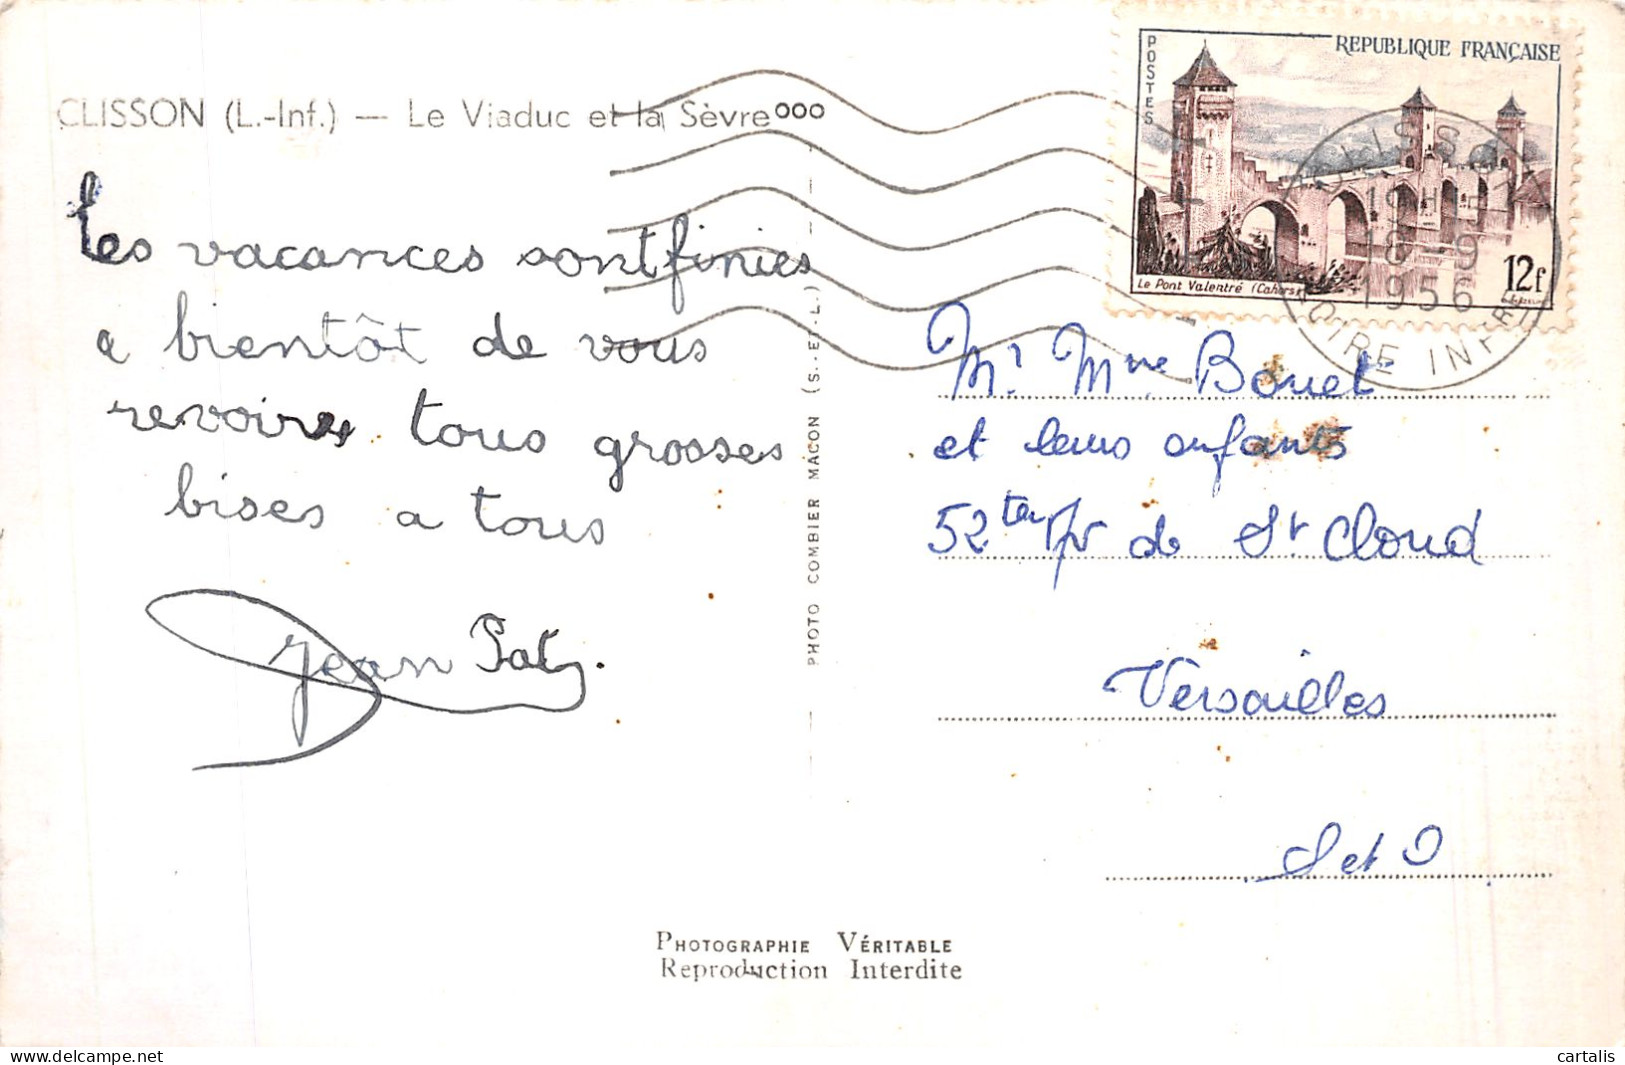 CLISSON (L.-Inf.) — Le Viaduc et la Sèvre ooo
Les vacances sont finies
a bientôt de vous
revoir tous grosses
bises a tous
Jean Paty.
PHOTO COMBIER MACON (S.-ET-L.)
POSTES
REPUBLIQUE FRANÇAISE
Le Pont Valentré (Cahors)
12f
CLISSON
19H
18-9
1956
LOIRE INFRE
Mr Mme Bouet
et leurs enfants
52 ter de St Cloud
Versailles
S et O
PHOTOGRAPHIE VÉRITABLE
Reproduction Interdite
Delcampe.net
cartalis